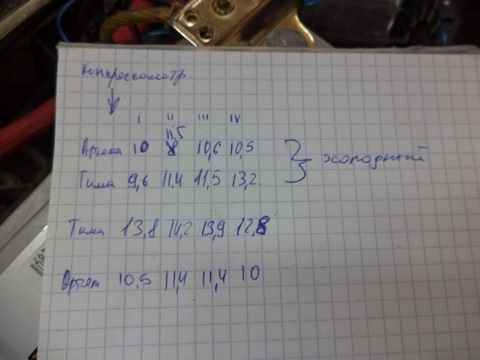 Компрессометр
I II III IV
11,5
Артема 10 8 10,6 10,5 холодный
Тима 9,6 11,4 11,5 13,2
Тима 13,8 14,2 13,9 12,8
Артем 10,5 11,4 11,4 10